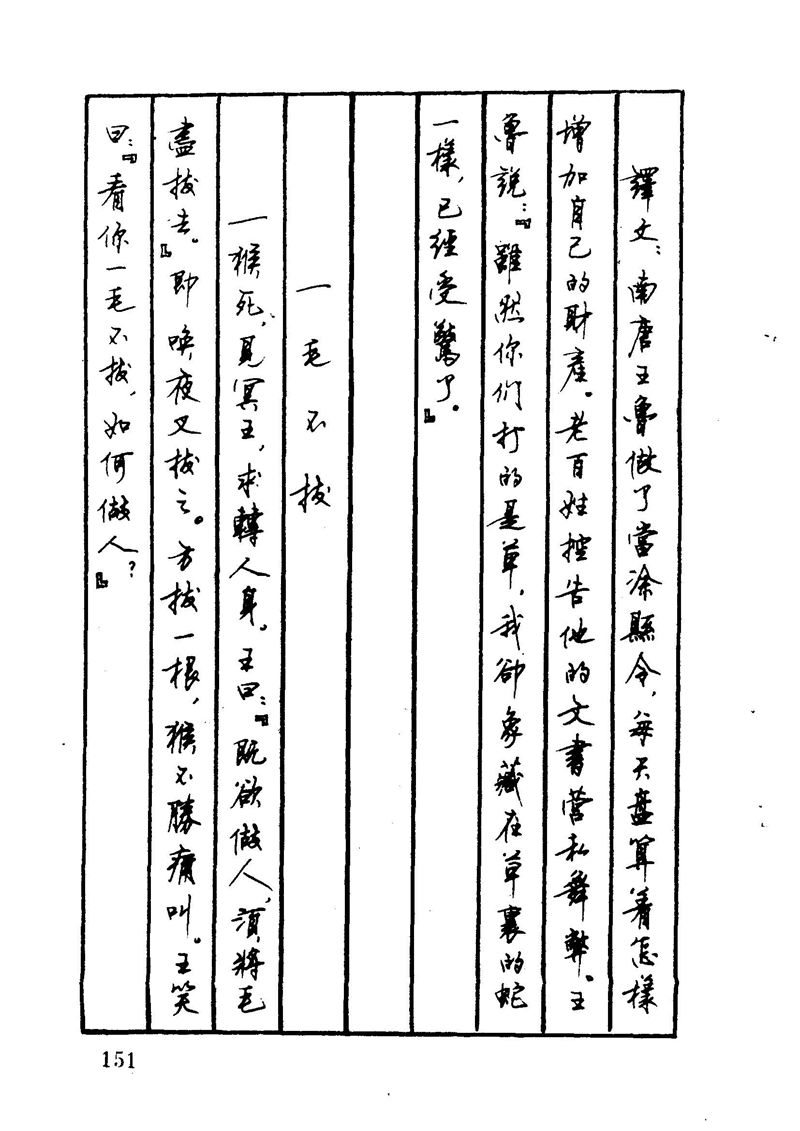 譯文：南唐王魯做了當涂縣令，每天盤算着怎樣
增加自己的財產。老百姓控告他的文書營私舞弊。王
魯說：『雖然你們打的是草，我卻象藏在草裏的蛇
一樣，已經受驚了。』
一毛不拔
一猴死，見冥王，求轉人身。王曰：『既欲做人，須將毛
盡拔去。』即喚夜叉拔之。方拔一根，猴不勝痛叫。王笑
曰：『看你一毛不拔，如何做人？』
151